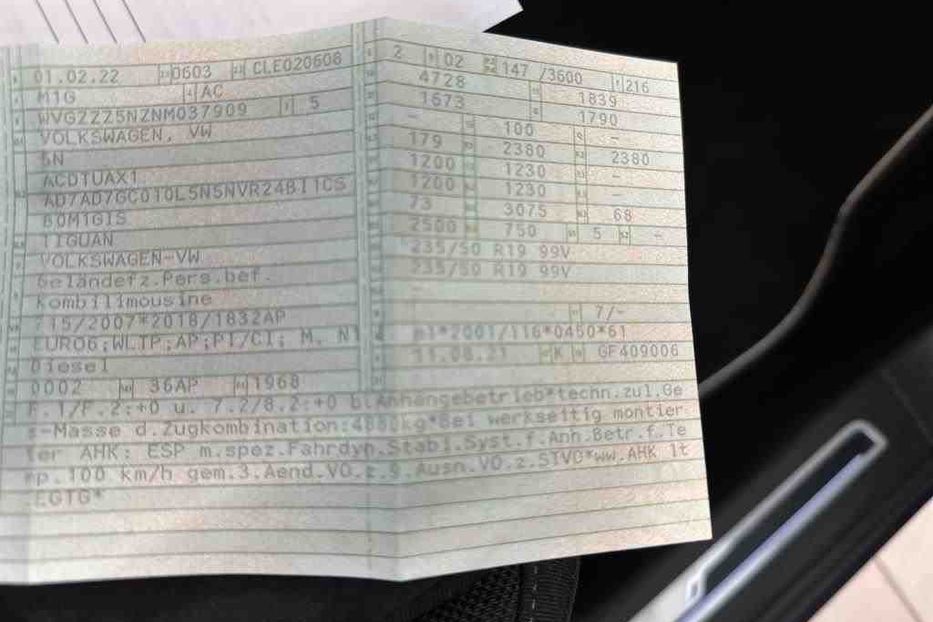 01.02.22 0603 CLE020608
M1G AC
WVGZZZ5NZNM037909 5
VOLKSWAGEN, VW
5N
ACD1UAX1
AD7AD7GC010L5N5NVR24BI1CS
B0M1GIS
TIGUAN
VOLKSWAGEN-VW
Geländefz.Pers.bef.
Kombilimousine
715/2007*2018/1832AP
EURO6;WLTP;AP;PI/CI; M, N1
Diesel
0002 36AP 1968
2 02 147 /3600 216
4728 1839
1673 1790
- 100 -
179 2380 2380
1200 1230 -
1200 1230 -
73 3075 68
2500 750 5 -
235/50 R19 99V
235/50 R19 99V
-
7/-
e1*2001/116*0450*61
11.08.21 K GF409006
F.1/F.2:+0 u. 7.2/8.2:+0 b.Anhängebetrieb*techn.zul.Ge
s-Masse d.Zugkombination:4880kg*Bei werkseitig montier
ter AHK: ESP m.spez.Fahrdyn.Stabi.Syst.f.Anh.Betr.f.Te
mp.100 km/h gem.3.Aend.VO.z.9.Ausn.VO.z.STVO*ww.AHK lt
EGTG*